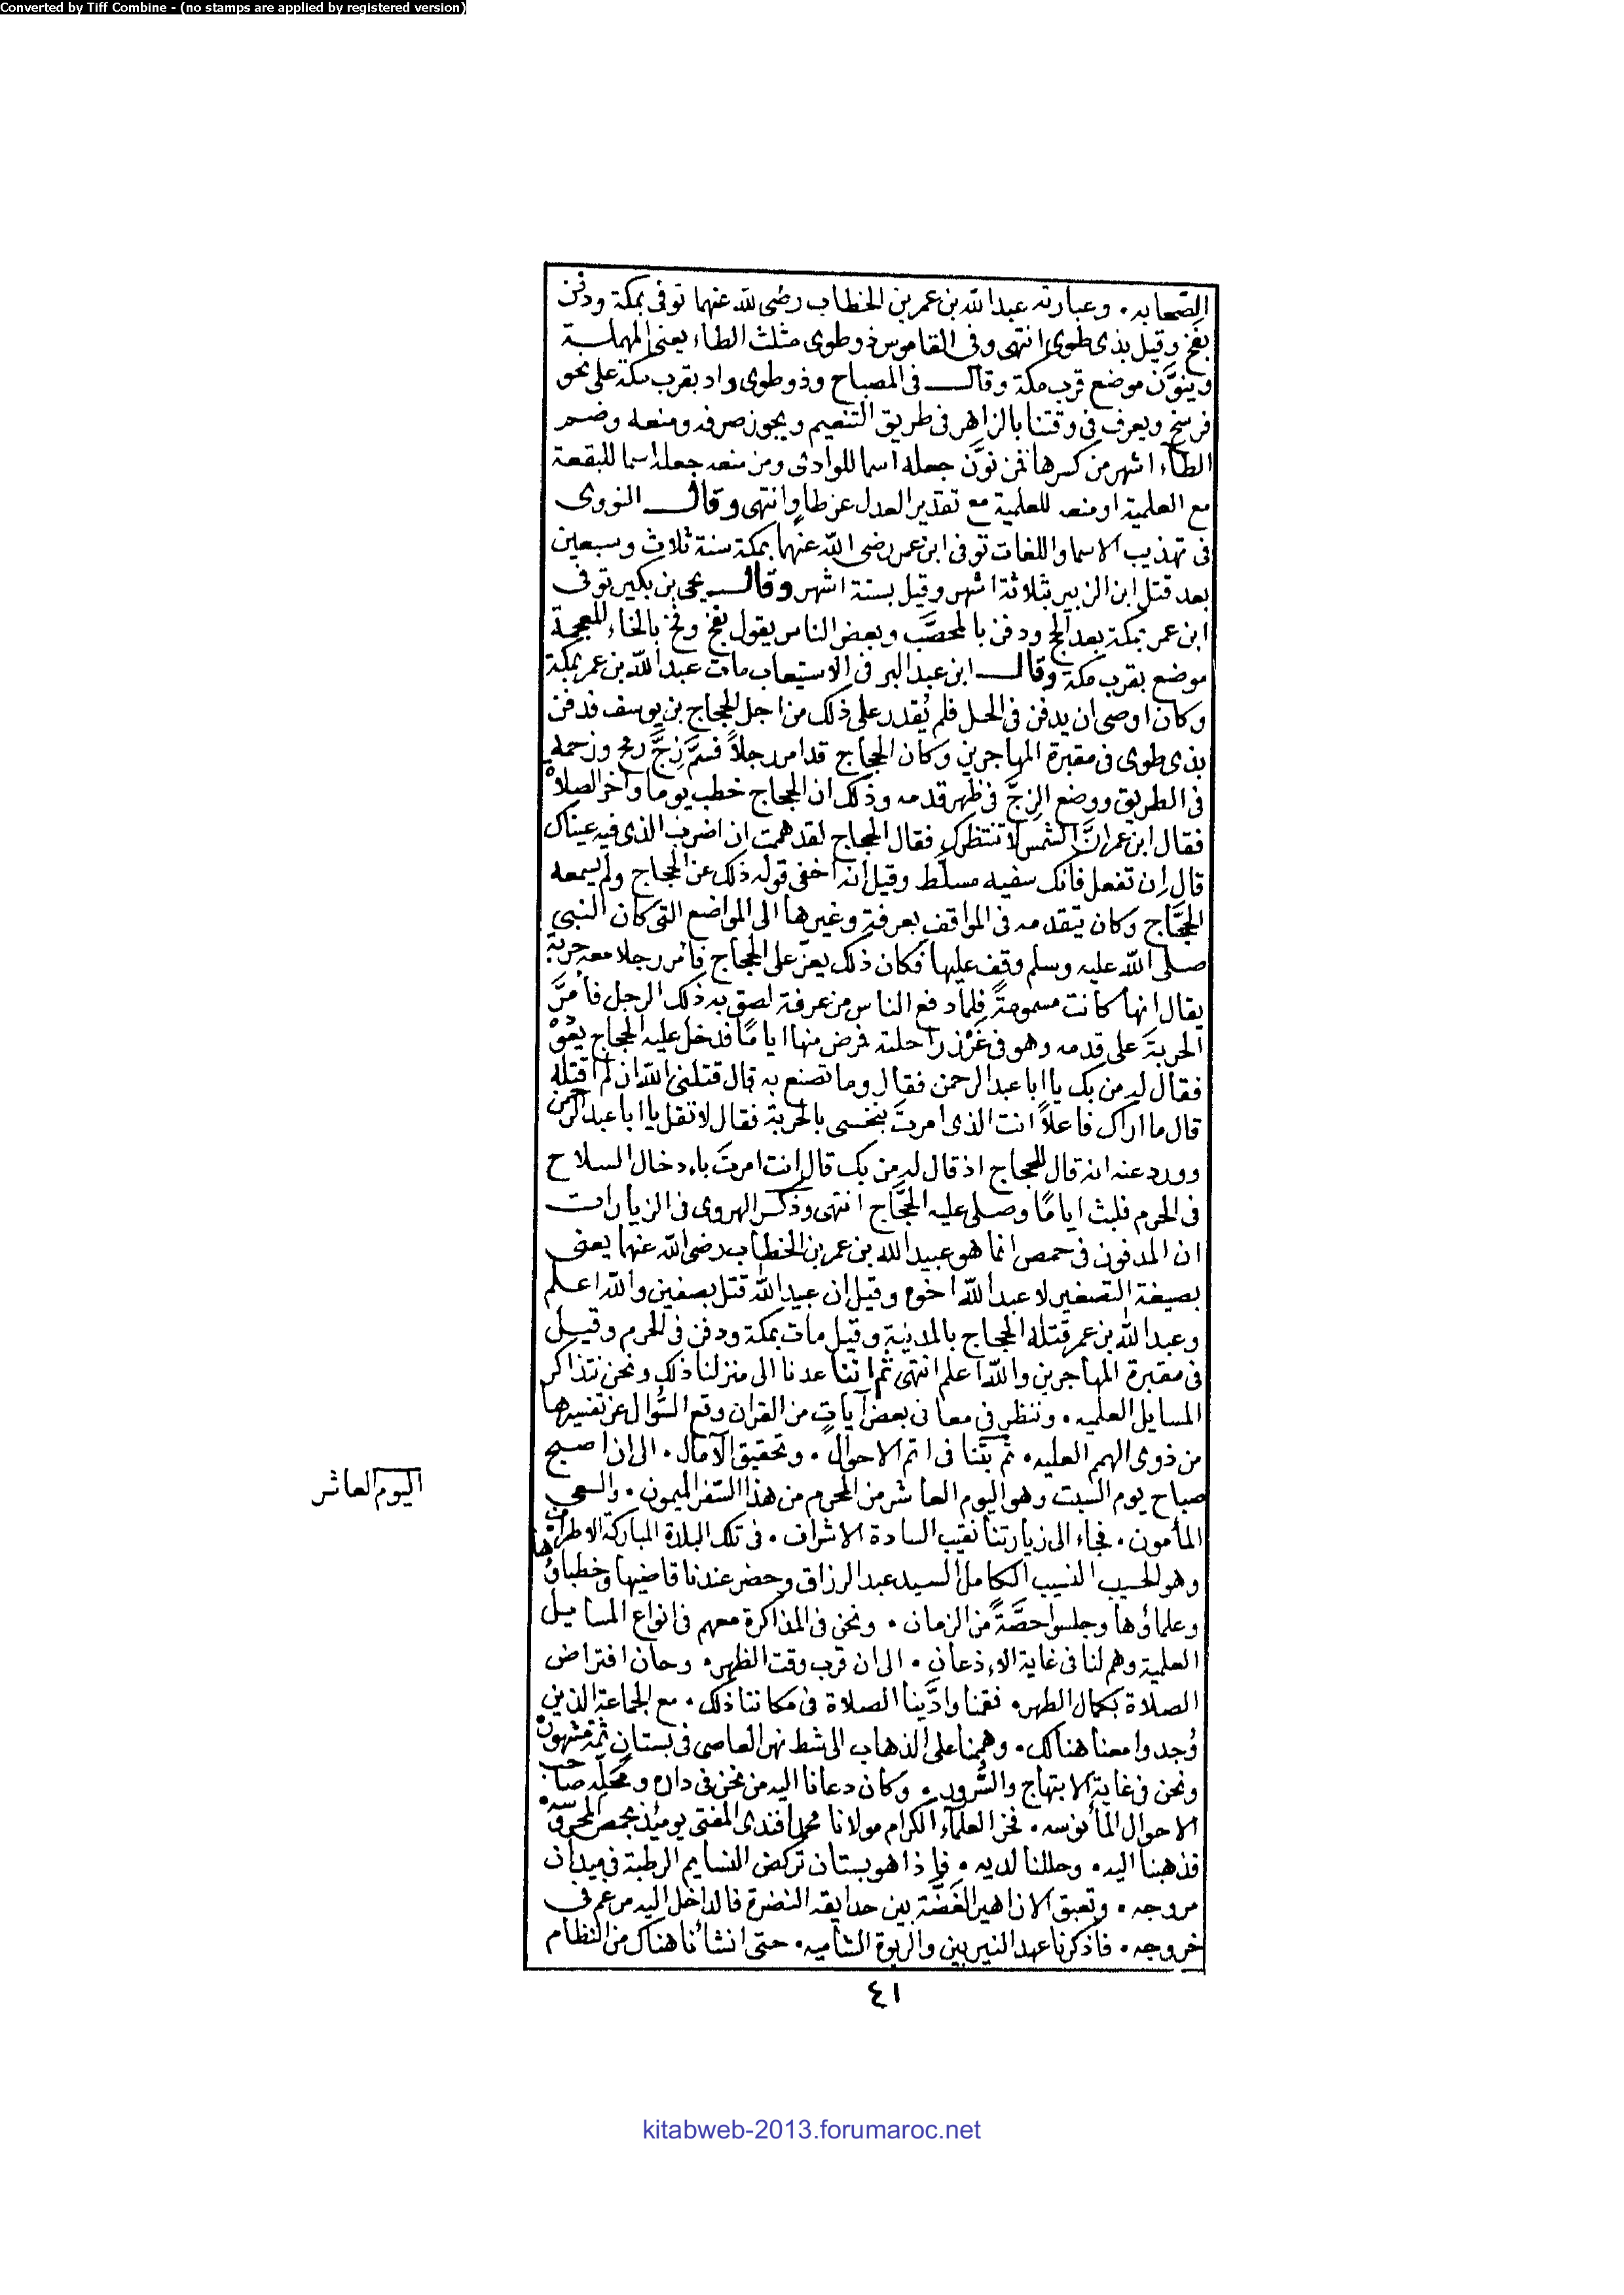 Converted by Tiff Combine - (no stamps are applied by registered version)
الصحابه. وعبارته عبد الله بن عمر بن الخطاب رضى لله عنهما توفى بمكة ودفن
بفخ وقيل بذى طوى انتهى وفى القاموس ذو طوى مثلث الطاء يعنى المهملة
وينوَّن موضع قرب مكة وقال فى المصباح وذو طوى واد بقرب مكة على نحو
فرسخ ويعرف فى وقتنا بالزاهر فى طريق التنعيم ويجوز صرفه ومنعه وضم
الطاء اشهر من كسرها فمن نوَّن جعله اسما للوادى ومن منعه جعله اسما للبقعة
مع العلمية او منعه للعلمية مع تقدير العدل عن طاوٍ انتهى وقال النووى
فى تهذيب الاسما واللغات توفى ابن عمر رضى الله عنهما بمكة سنة ثلاث وسبعين
بعد قتل ابن الزبير بثلاثة اشهر وقيل بستة اشهر وقال يحيى بن بكير توفى
ابن عمر بمكة بعد الحج ودفن بالمحصَّب وبعض الناس يقول بفخ وفخ بالخاء المعجمة
موضع بقرب مكة وقال ابن عبد البر فى الاستيعاب مات عبد الله بن عمر بمكة
وكان اوصى ان يدفن فى الحل فلم يُقدر على ذلك من اجل الحجاج بن يوسف فدفن
بذى طوى فى مقبرة المهاجرين وكان الحجاج قد امر رجلاً فسمَّ زجَّ رمح وزحمه
فى الطريق ووضع الزجَّ فى ظهر قدمه وذلك ان الحجاج خطب يوما وأخر الصلاة
فقال ابن عمر انَّ الشمس لا تنتظرك فقال الحجاج لقد هممت ان اضرب الذى فيه عيناك
قال اِن تفعل فانك سفيه مسلَّط وقيل انه اخفى قوله ذلك عن الحجاج ولم يسمعه
الحجَّاج وكان يتقدمه فى المواقف بعرفة وغيرها الى المواضع التى كان النبى
صلى الله عليه وسلم وقف عليها فكان ذلك يعزّ على الحجاج فأمر رجلا معه حربة
يقال انها كانت مسمومةً فلما دفع الناس من عرفة لصق به ذلك الرجل فأمرَّ
الحربةَ على قدمه وهو فى غَرْز راحلته فمرض منها ايامًا فدخل عليه الحجاج يعُودُه
فقال له من بك يا ابا عبد الرحمن فقال وما تصنع به قال قتلنى الله ان لم اقتله
قال ما اراك فاعلاً انت الذى امرتَ بنخسى بالحربة فقال لا تقل يا ابا عبد الرحمن
وورد عنه انه قال للحجاج اذ قال له من بك قال انت امرتَ بادخال السلاح
فى الحرم فلبث ايامًا وصلى عليه الحجَّاج انتهى وذكر الهروى فى الزيارات
ان المدفون فى حمص انما هو عبيد الله بن عمر بن الخطاب رضى الله عنهما يعنى
بصيغة التصغير لا عبد الله اخوه وقيل ان عبيد الله قتل بصفين والله اعلم
وعبد الله بن عمر قتله الحجاج بالمدينة وقيل مات بمكة ودفن فى الحرم وقيل
فى مقبرة المهاجرين والله اعلم انتهى ثم اننا عدنا الى منزلنا ذلك ونحن نتذاكر
المسايل العلميه. وننظر فى معانى بعض آيات من القران وقع السُّوال عن تفسيرها
من ذوى الهمم العليه. ثم بَتْنا فى اتم الاحوال. وتحقيق الآمال. الى ان اصبح
صباح يوم السبت وهو اليوم العاشر من المحرم من هذا السَّفر الميمون. والسعى
اليوم العاشر
المأمون. فجاء الى زيارتنا نقيب السادة الاشراف. فى تلك البلدة المباركة الاطراف
وهو الحسيب النسيب الكامل السيد عبد الرزاق وحضر عندنا قاضيها وخطباؤها
وعلماؤها وجلسوا حصَّةً من الزمان. ونحن فى المذاكرة معهم فى انواع المسايل
العلمية وهم لنا فى غاية الاذعان. الى ان قرب وقت الظهر. وحان افتراض
الصلاة بكمال الطهر. فقمنا وادَّينا الصلاة فى مكاننا ذلك. مع الجماعة الذين
وُجدوا معنا هنالك. وهممنا على الذهاب الى شط نهر العاصى فى بستان ثمَّة مشهور
ونحن فى غاية الابتهاج والسُّرور. وكان دعانا اليه من نحن فى داره ومحلّه صاحب
الاحوال المأنوسه. فخر العلماء الكرام مولانا محمد افندى المفتى يومئذ بحمص المحروسه
فذهبنا اليه. وحللنا لديه. فاذا هو بستان تركض النسايم الرطبة فى ميدان
مروجه. وتعبق الازاهير الغَضَّة بين حدايقه النضرة فالداخل اليه مرغم فى
خروجه. فاذكرنا عهد النيربين والربوة الشاميه. حتى انشأنا هناك من النظام
٤١
kitabweb-2013.forumaroc.net